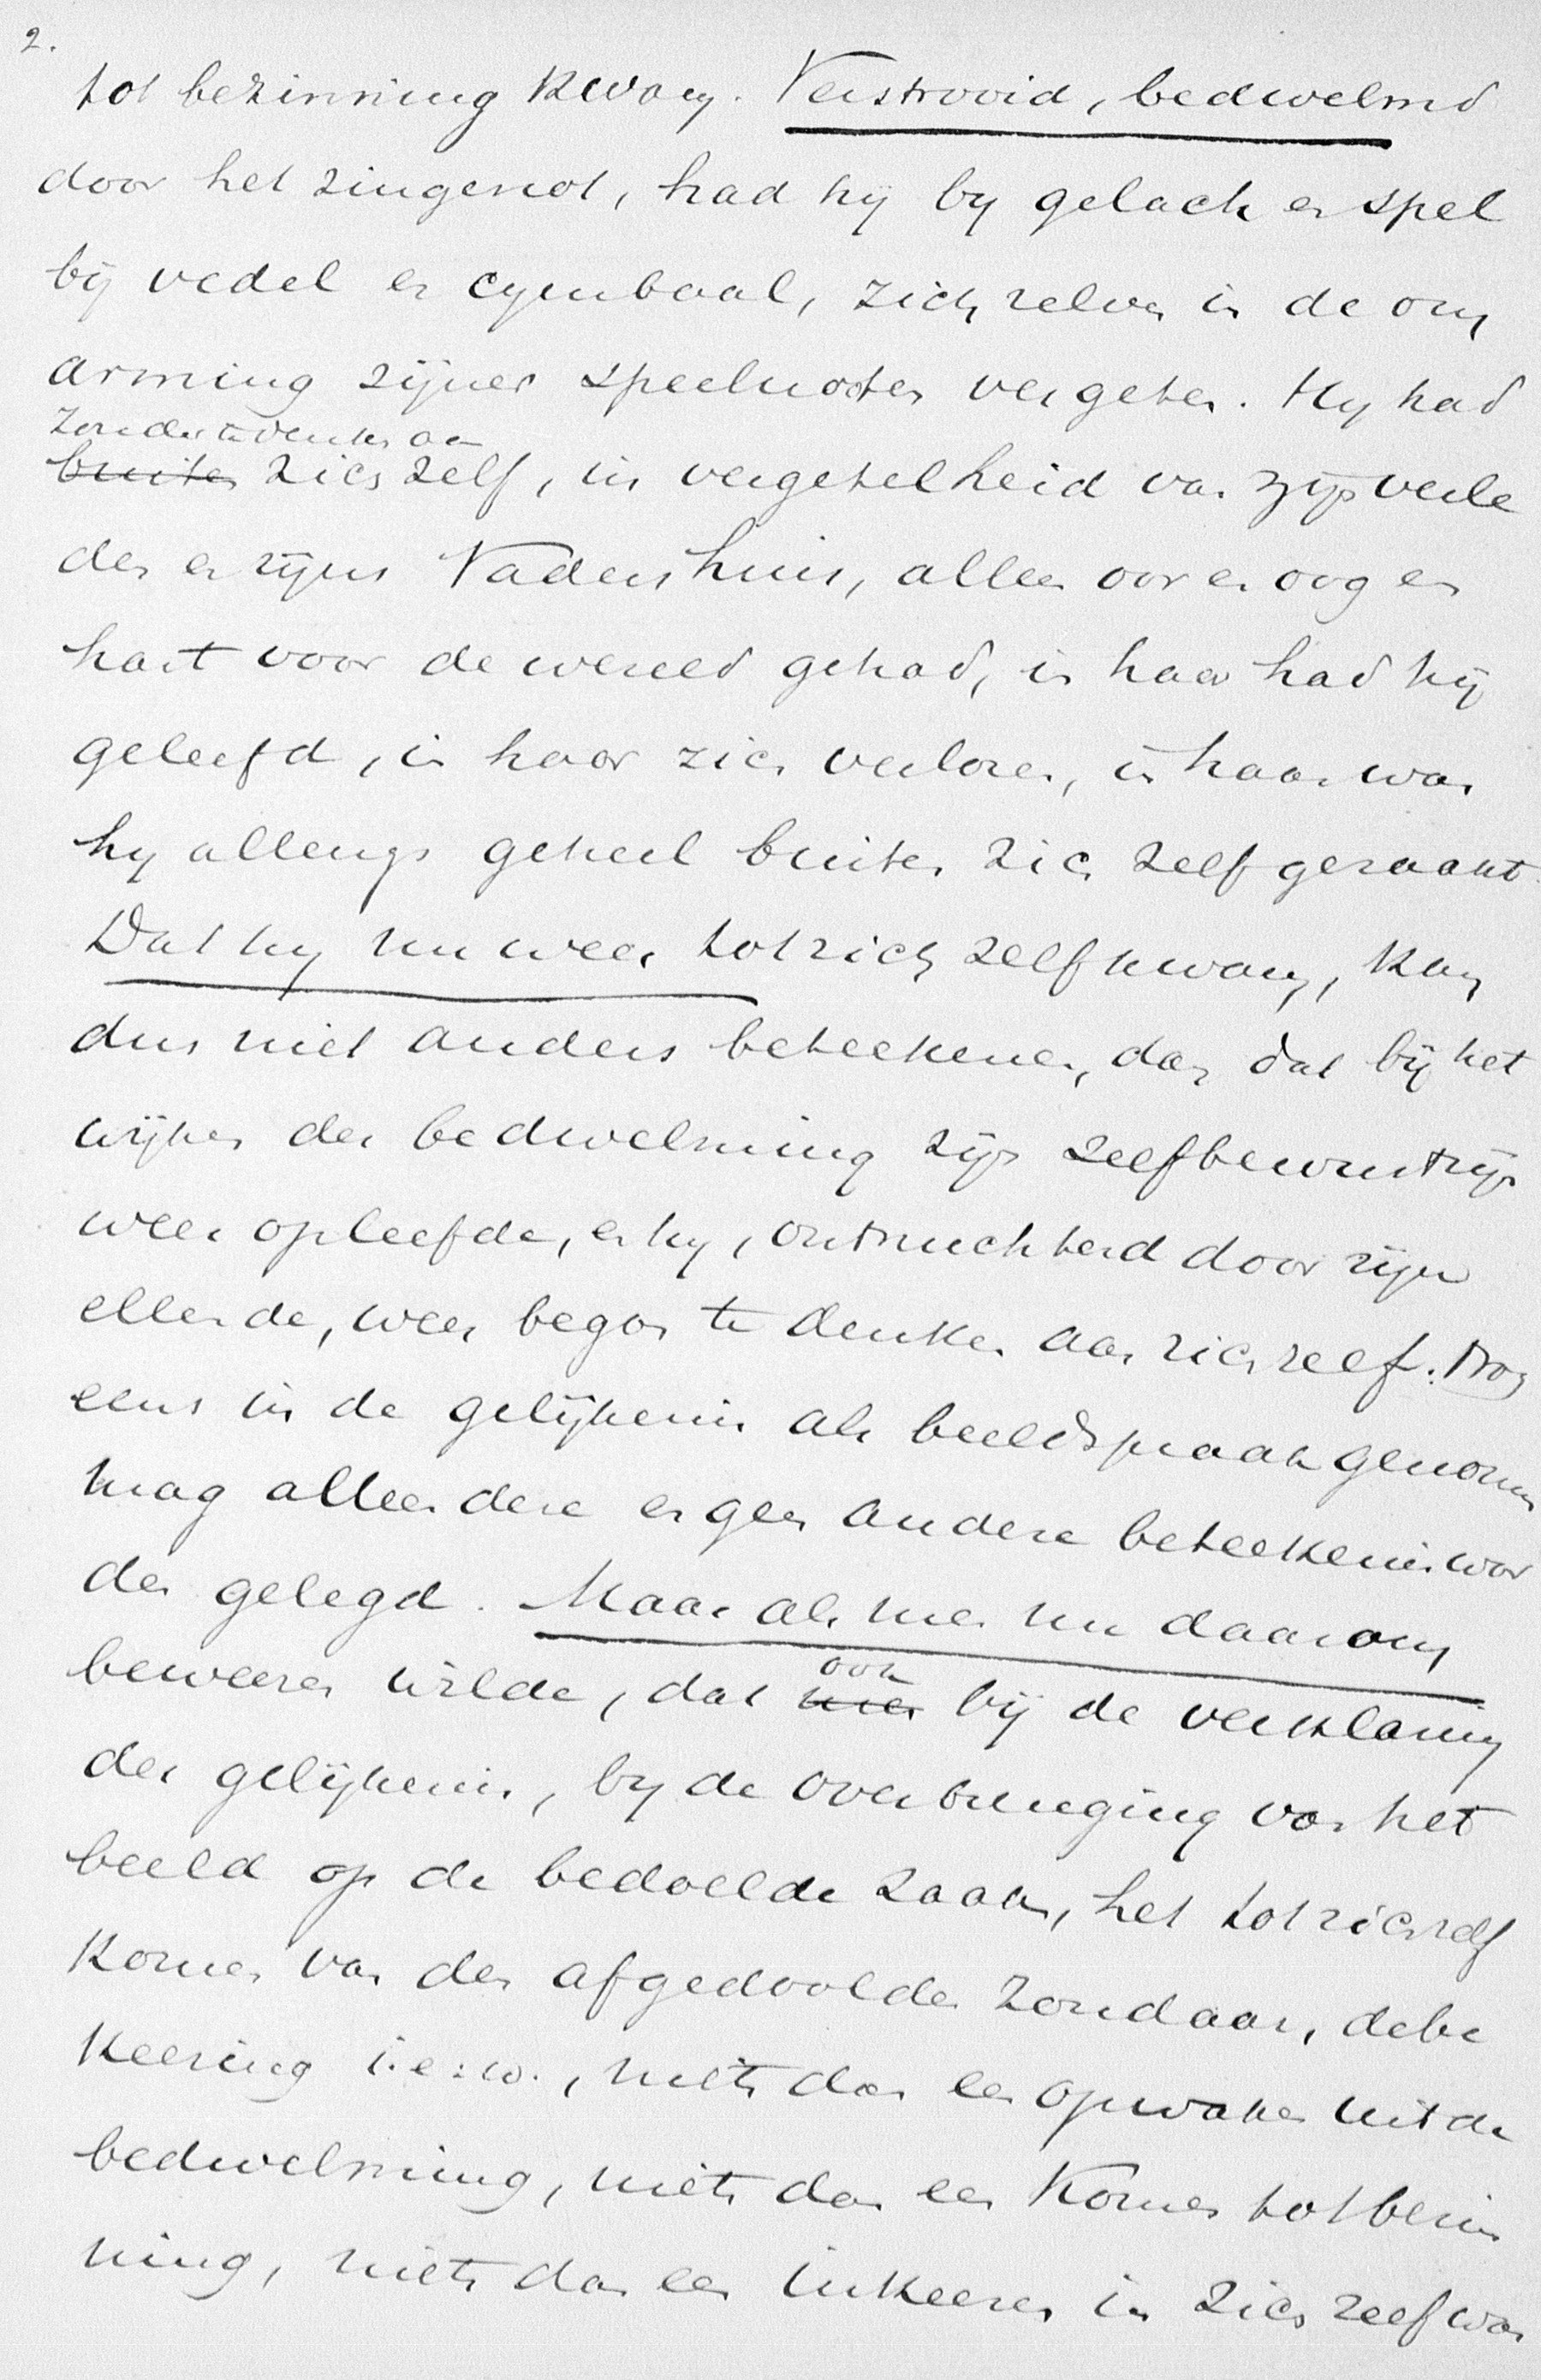 2.
tot bezinning kwam. Verstrooid, bedwelmd
door het zingenot, had hij bij gelach en spel
bij vedel en cymbaal, zich zelven in de om
arming zijner speelnooten vergeten. Hij had
zonder te denken aan
buiten zich zelf, in vergetelheid van zijn verle
den en zijns Vaders huis, alleen oor en oog en
hart voor de wereld gehad, in haar had hij
geleefd, in haar zich verloren, in haar was
hij allengs geheel buiten zich zelf geraakt.
Dat hij nu weer tot zich zelf kwam, kan
dus niet anders beteekenen, dan dat bij het
wijken der bedwelming zijn zelfbewustzijn
weer opleefde, en hij, ontnuchterd door zijn
ellende, weer begon te denken aan zich zelf. Nog
eens in de gelijkenis als beeldspraak genomen
mag alleen deze en geen andere beteekenis wor
den gelegd. Maar als men nu daarom
beweren wilde, dat hier ook bij de verklaring
der gelijkenis, bij de overbrenging van het
beeld op de bedoelde zaak, het tot zich zelf
komen van den afgedoolden zondaar, de be
keering i.e.w., niets dan een opwaken uit de
bedwelming, niets dan een komen tot bezin
ning, niets dan een inkeeren in zich zelf was